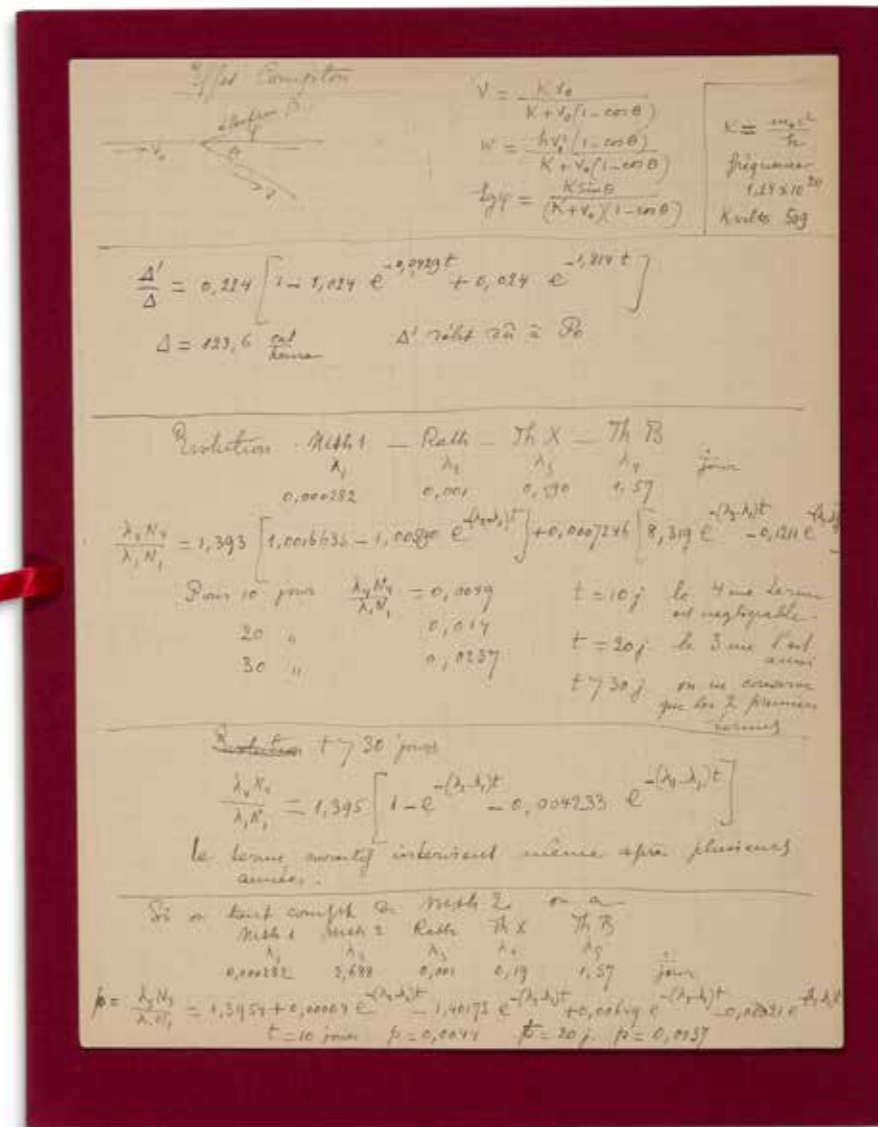 Effet Compton
électron
ν = Kν₀ / K + ν₀(1 - cosθ)
W = hν₀²(1 - cosθ) / K + ν₀(1 - cosθ)
tgφ = K sinθ / (K + ν₀)(1 - cosθ)
K = m₀c² / h
fréquence
1,24 x 10²⁰
K volts 509
Δ'/Δ = 0,224 [1 - 1,024 e^-0,0429t + 0,024 e^-1,814t]
Δ = 123,6 cal/heure Δ' débit dû à Po
Evolution Msth1 - Rath - Th X - Th B
λ₁ λ₂ λ₃ λ₄
0,000282 0,001 0,190 1,57 jour
λ₄N₄/λ₁N₁ = 1,393 [1,0016636 - 1,00890 e^-(λ₂-λ₁)t] + 0,0007246 [8,319 e^-(λ₃-λ₁)t - 0,1211 e
Pour 10 jours λ₄N₄/λ₁N₁ = 0,0049 t = 10 j le 4me terme est négligeable
20 " 0,014 t = 20 j le 3me l'est aussi
30 " 0,0237 t > 30 j on ne conserve que les 2 premiers termes
Evolution t > 30 jours
λ₄N₄/λ₁N₁ = 1,395 [1 - e^-(λ₂-λ₁)t - 0,004233 e^-(λ₂-λ₁)t]
le terme intervient même après plusieurs
années.
Si on tient compte de Msth 2 on a
Msth 1 Msth 2 Rath Th X Th B
λ₁ λ₂ λ₃ λ₄ λ₅
0,000282 2,688 0,001 0,19 1,57 jour
p = λ₅N₅/λ₁N₁ = 1,3954 + 0,00004 e^-(λ₂-λ₁)t - 1,40173 e^-(λ₃-λ₁)t + 0,00649 e^-(λ₄-λ₁)t
t = 10 jours p = 0,0044 t = 20 j. p = 0,0137